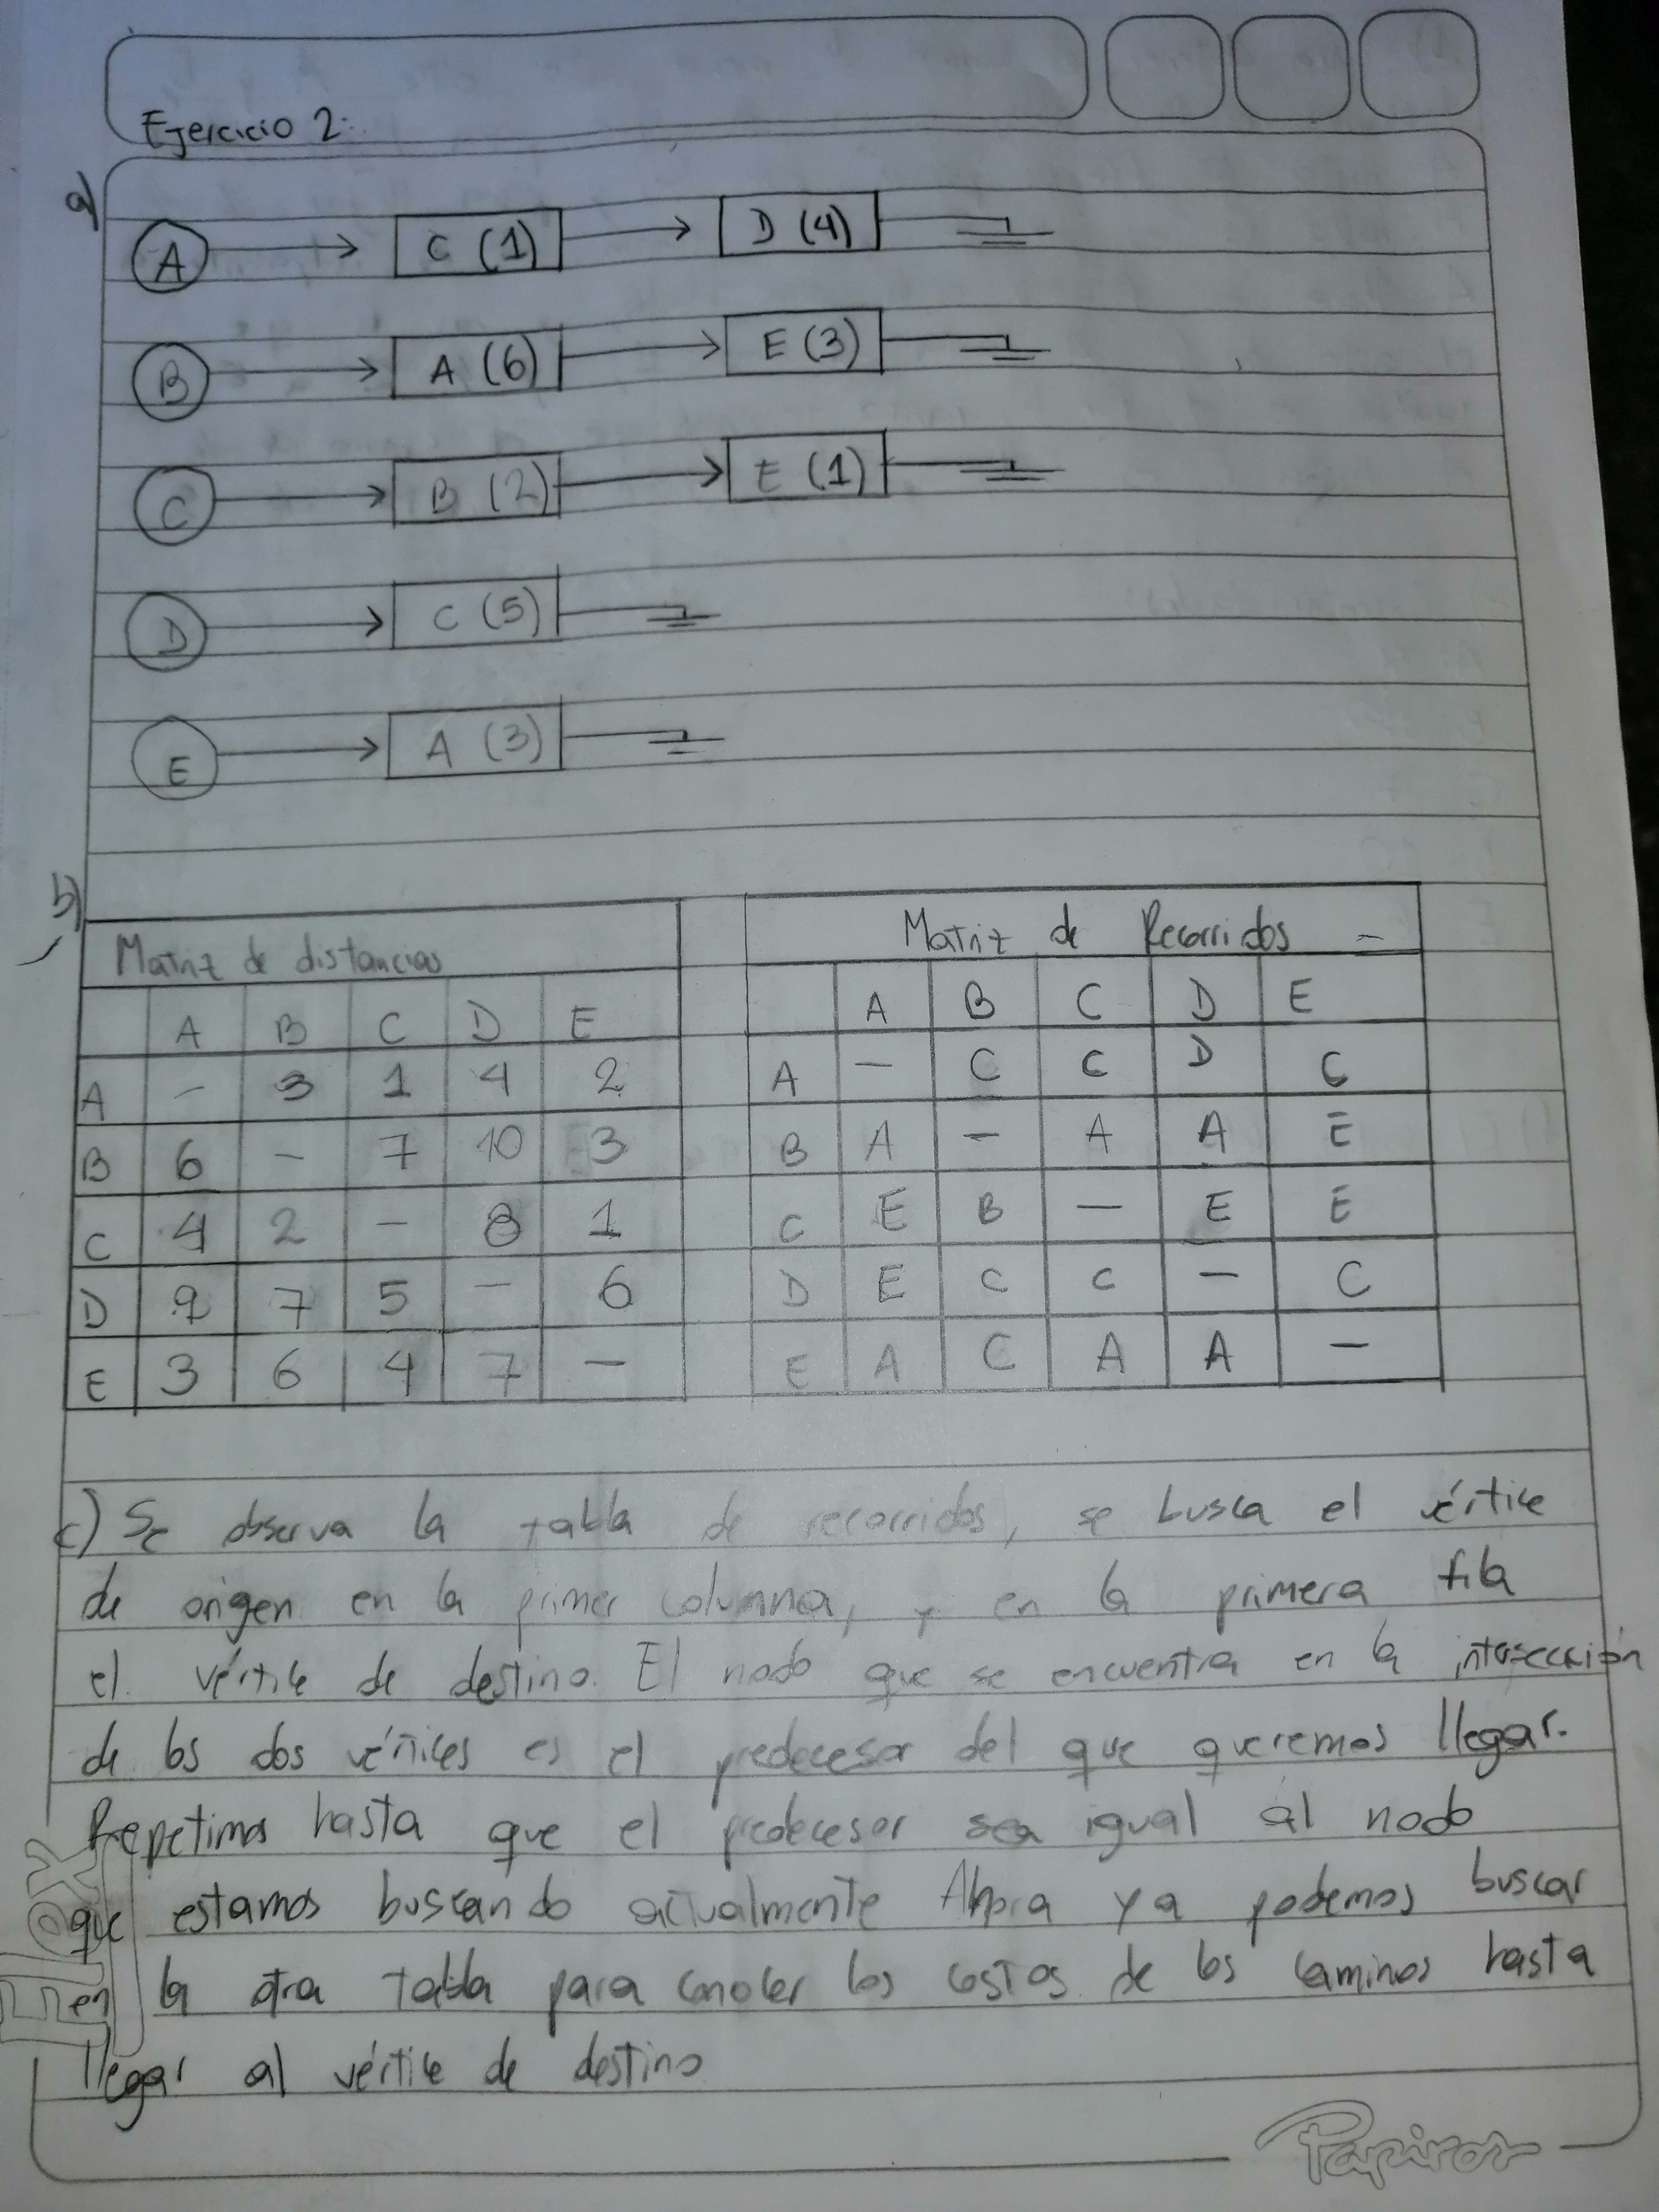 Ejercicio 2:
a)
A C (1) D (4)
B A (6) E (3)
C B (2) E (1)
D C (5)
E A (3)
b)
Matriz de distancias Matriz de Recorridos -
A B C D E A B C D E
A - 3 1 4 2 A - C C D C
B 6 - 7 10 3 B A - A A E
C 4 2 - 8 1 C E B - E E
D 9 7 5 - 6 D E C C - C
E 3 6 4 7 - E A C A A -
c) Se observa la tabla de recorridos, se busca el vértice
de origen en la primer columna, y en la primera fila
el vértice de destino. El nodo que se encuentra en la intersección
de los dos vértices es el predecesor del que queremos llegar.
Repetimos hasta que el predecesor sea igual al nodo
que estamos buscando actualmente Ahora ya podemos buscar
en la otra tabla para conocer los costos de los caminos hasta
llegar al vértice de destino
Flex
Papiros